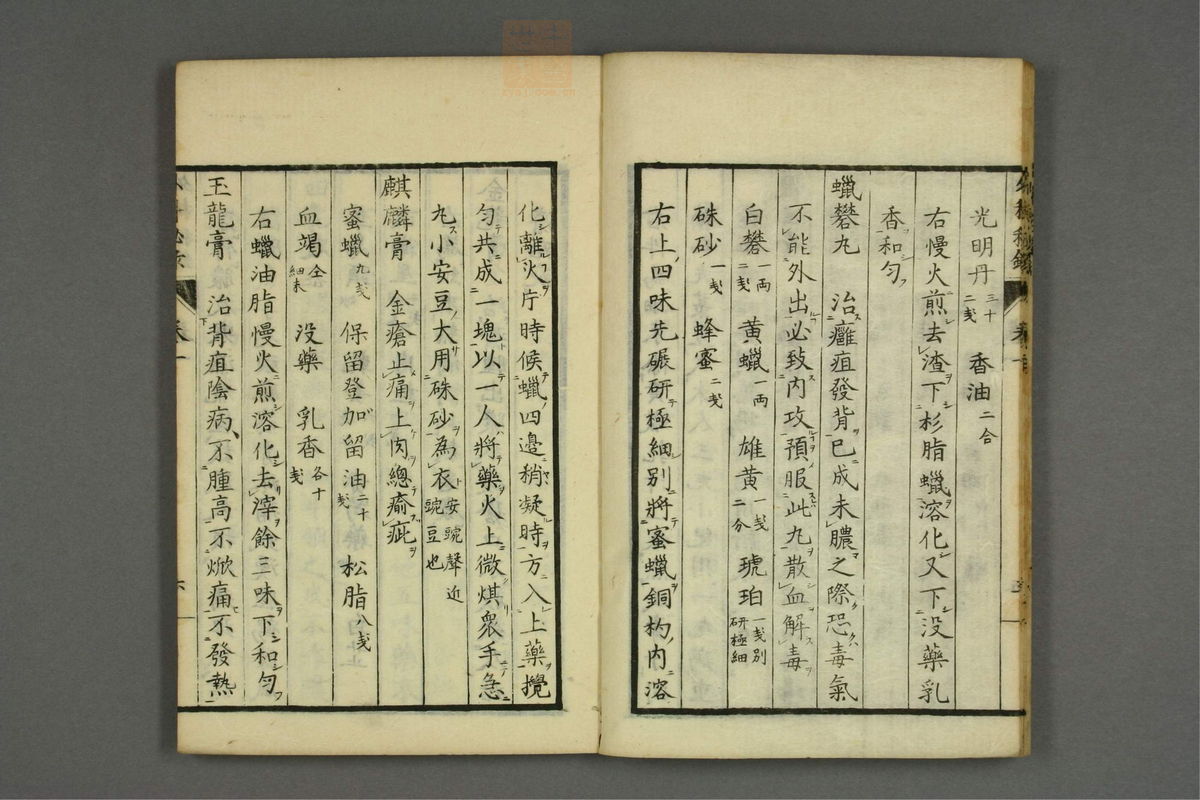 光明丹三十二戔　香油二合
右慢火煎去渣下杉脂蠟溶化又下没藥乳
香和匀
蠟礬丸　治癰疽發背已成未膿之際恐毒氣
不能外出必致内攻預服此丸散血解毒
白礬一両二戔　黄蠟一両　雄黄一戔二分　琥珀一戔別研極細
硃砂一戔　蜂蜜二戔
右上四味先碾研極細別將蜜蠟銅杓内溶
化離火片時候蠟四邊稍凝時方入上藥攪
匀共成一塊以一人將藥火上微烘衆手急
丸小安豆大用硃砂為衣安豌聲近豌豆也
麒麟膏　金瘡止痛上肉總瘉疵
蜜蠟九戔　保留登加留油二十戔　松脂八戔
血竭仝細末　没藥　乳香各十戔
右蠟油脂慢火煎溶化去滓餘三味下和匀
玉龍膏　治背疽陰病不腫高不焮痛不發熱